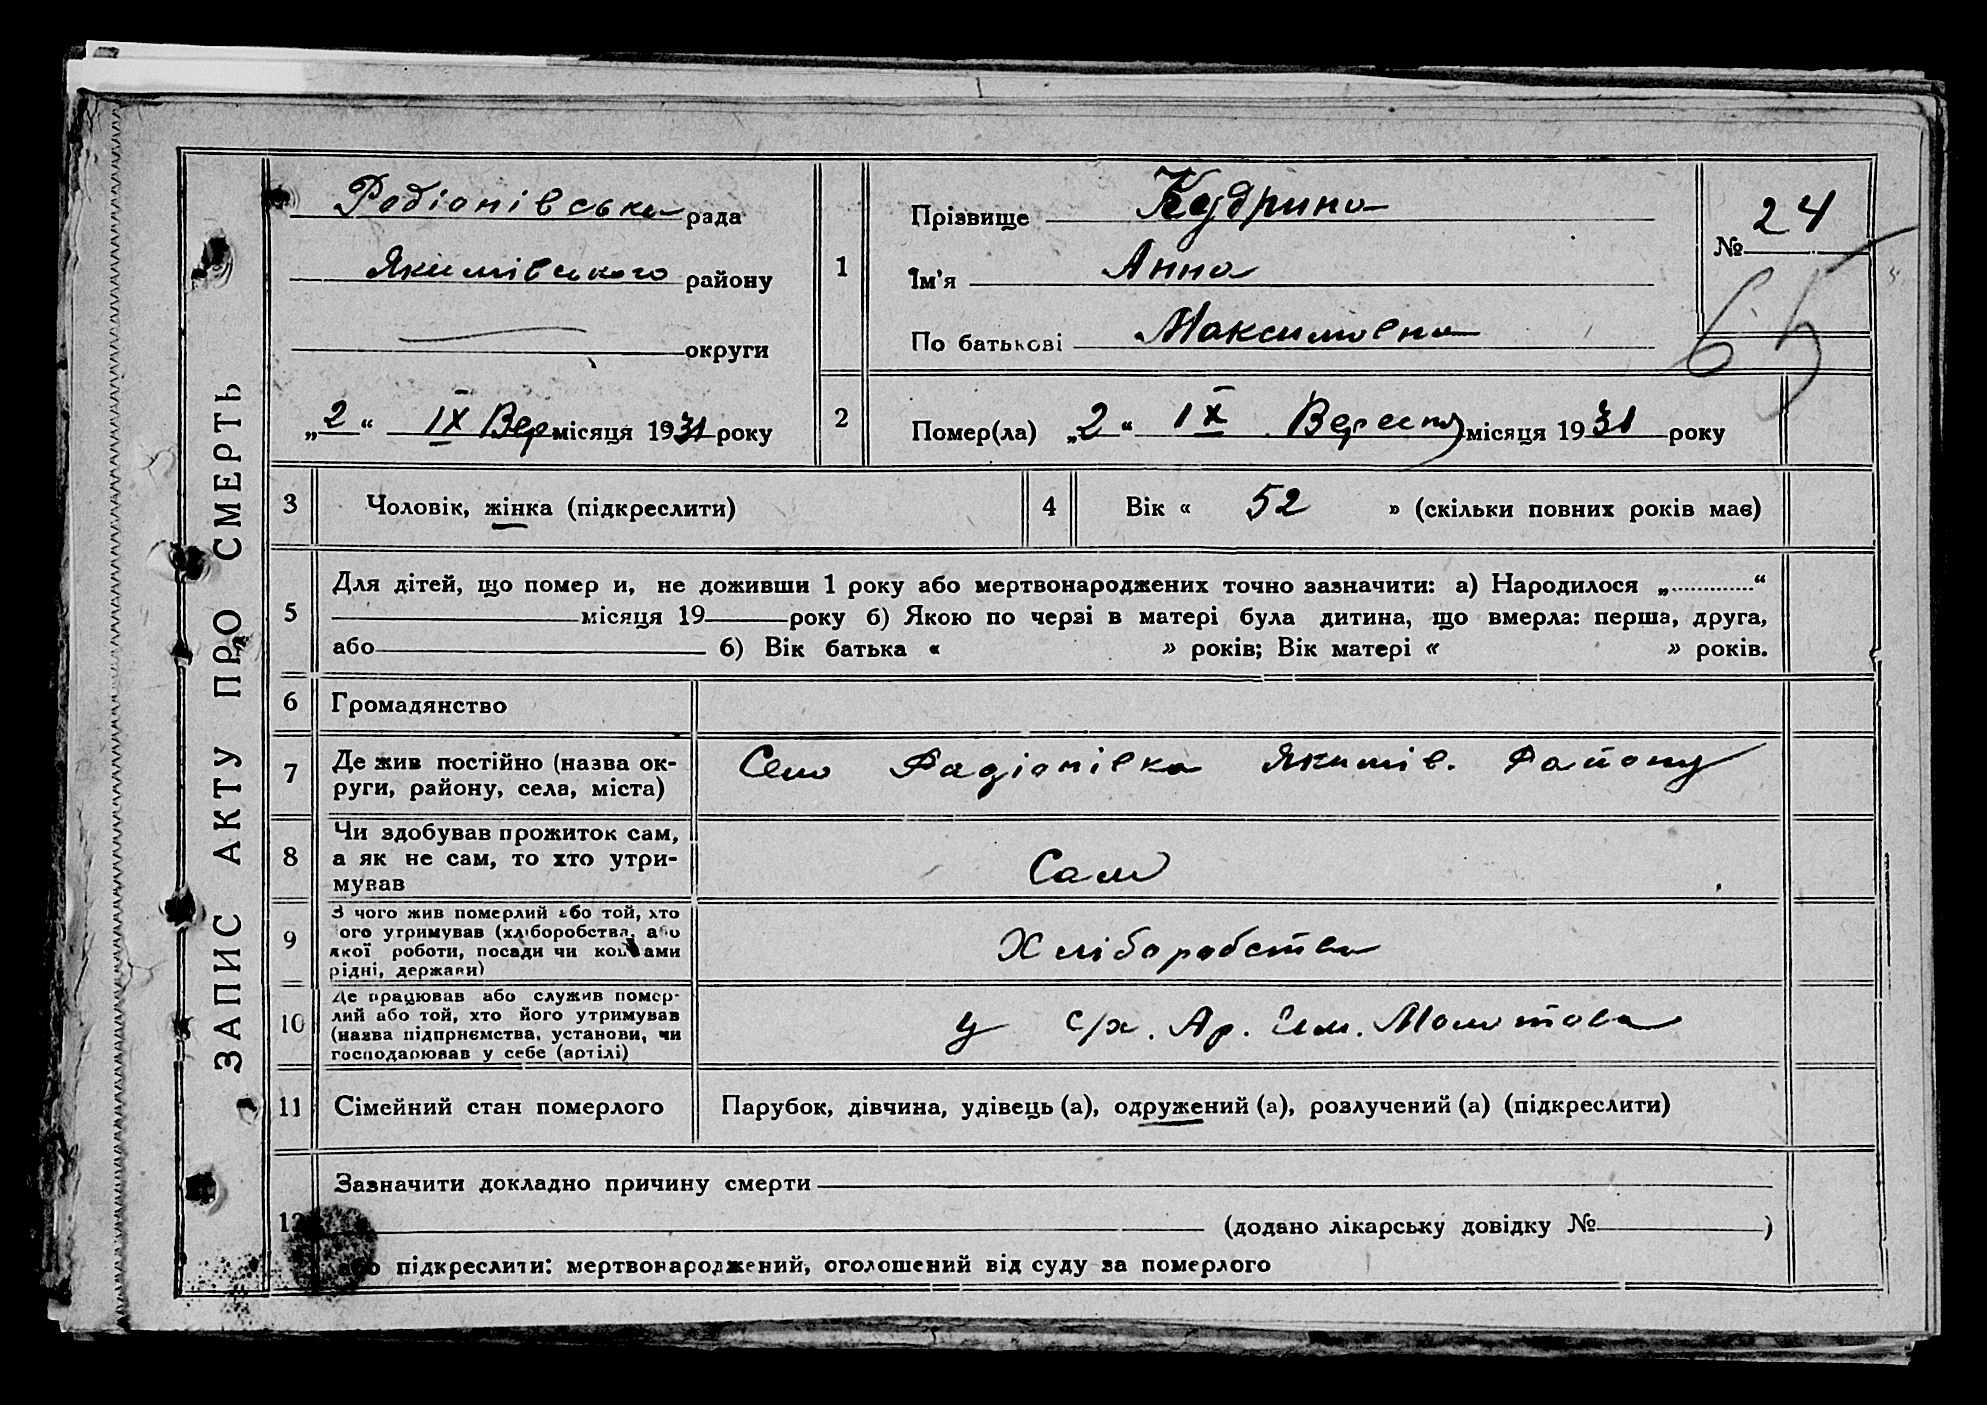 ЗАПИС АКТУ ПРО СМЕРТЬ
Родіонівська рада
Якимівського району
округи
„2“ IX Вер місяця 1931 року
1
Прізвище Кудрина
Ім'я Анна
По батькові Максимовна
№ 24
65
2
Помер(ла) „2“ IX Вересня місяця 1931 року
3 Чоловік, жінка (підкреслити)
4 Вік « 52 » (скільки повних років має)
5
Для дітей, що помер и, не доживши 1 року або мертвонароджених точно зазначити: а) Народилося „............“
місяця 19 року б) Якою по черзі в матері була дитина, що вмерла: перша, друга,
або б) Вік батька « » років; Вік матері « » років.
6 Громадянство
7 Де жив постійно (назва ок-
руги, району, села, міста)
Село Радіонівка Якимів. Району
8 Чи здобував прожиток сам,
а як не сам, то хто утри-
мував
Сам
9 З чого жив померлий або той, хто
ого утримував (хліборобства, або
якої роботи, посади чи коштами
рідні, держави)
Хліборобства
10 Де працював або служив помер-
лий або той, хто його утримував
(назва підприємства, установи, чи
господарював у себе (артілі)
у с/х. Ар. Им. Молотова
11 Сімейний стан померлого
Парубок, дівчина, удівець (а), одружений (а), розлучений (а) (підкреслити)
12
Зазначити докладно причину смерти
(додано лікарську довідку № )
або підкреслити: мертвонароджений, оголошений від суду за померлого